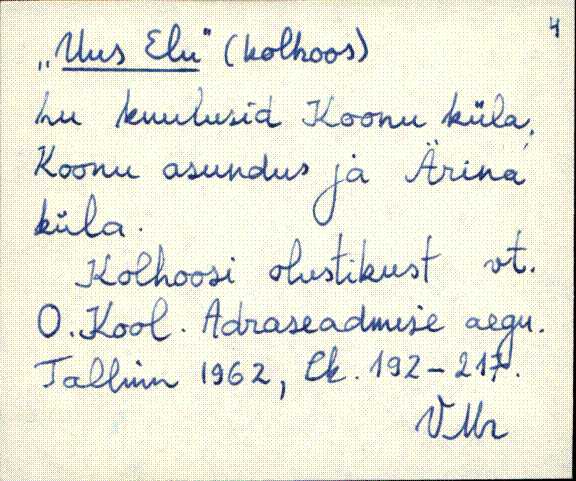 4
„Uus Elu" (kolhoos)
kuulusid Koonu küla,
Koonu asundus ja Ärina
küla.
Kolhoosi olustikust vt.
O. Kool. Adraseadmise aegu.
Tallinn 1962, lk. 192-217.
VMr